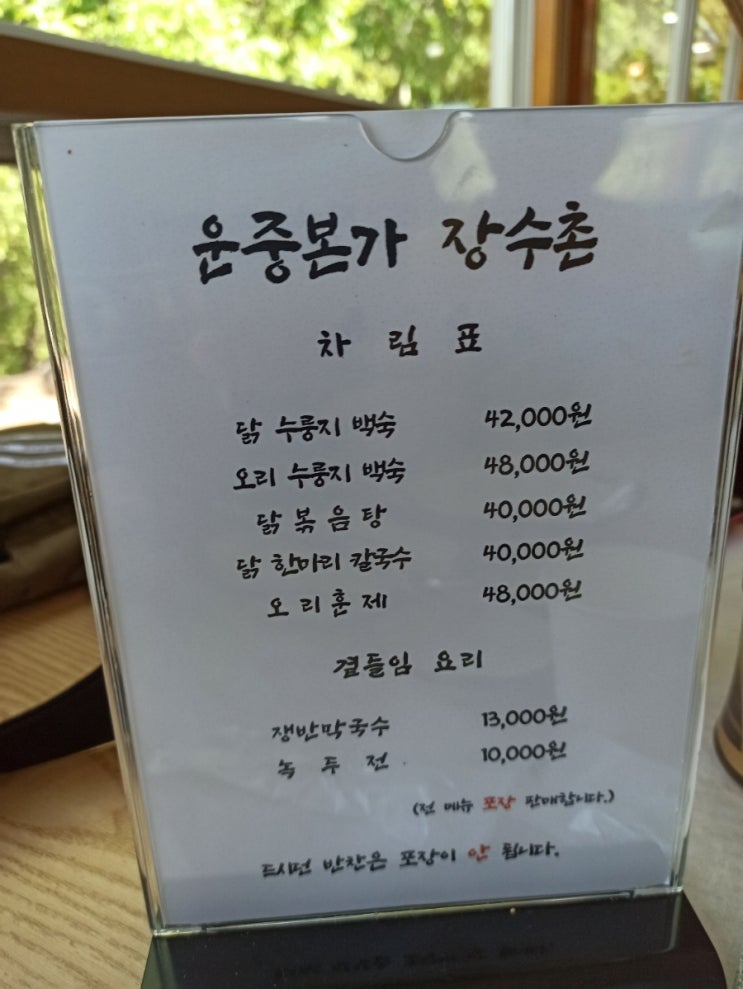 운중본가 장수촌
차 림 표
닭 누룽지 백숙 42,000원
오리 누룽지 백숙 48,000원
닭 볶 음 탕 40,000원
닭 한마리 칼국수 40,000원
오 리 훈 제 48,000원
곁들임 요리
쟁반막국수 13,000원
녹 두 전 10,000원
(전 메뉴 포장 판매합니다.)
드시던 반찬은 포장이 안 됩니다.